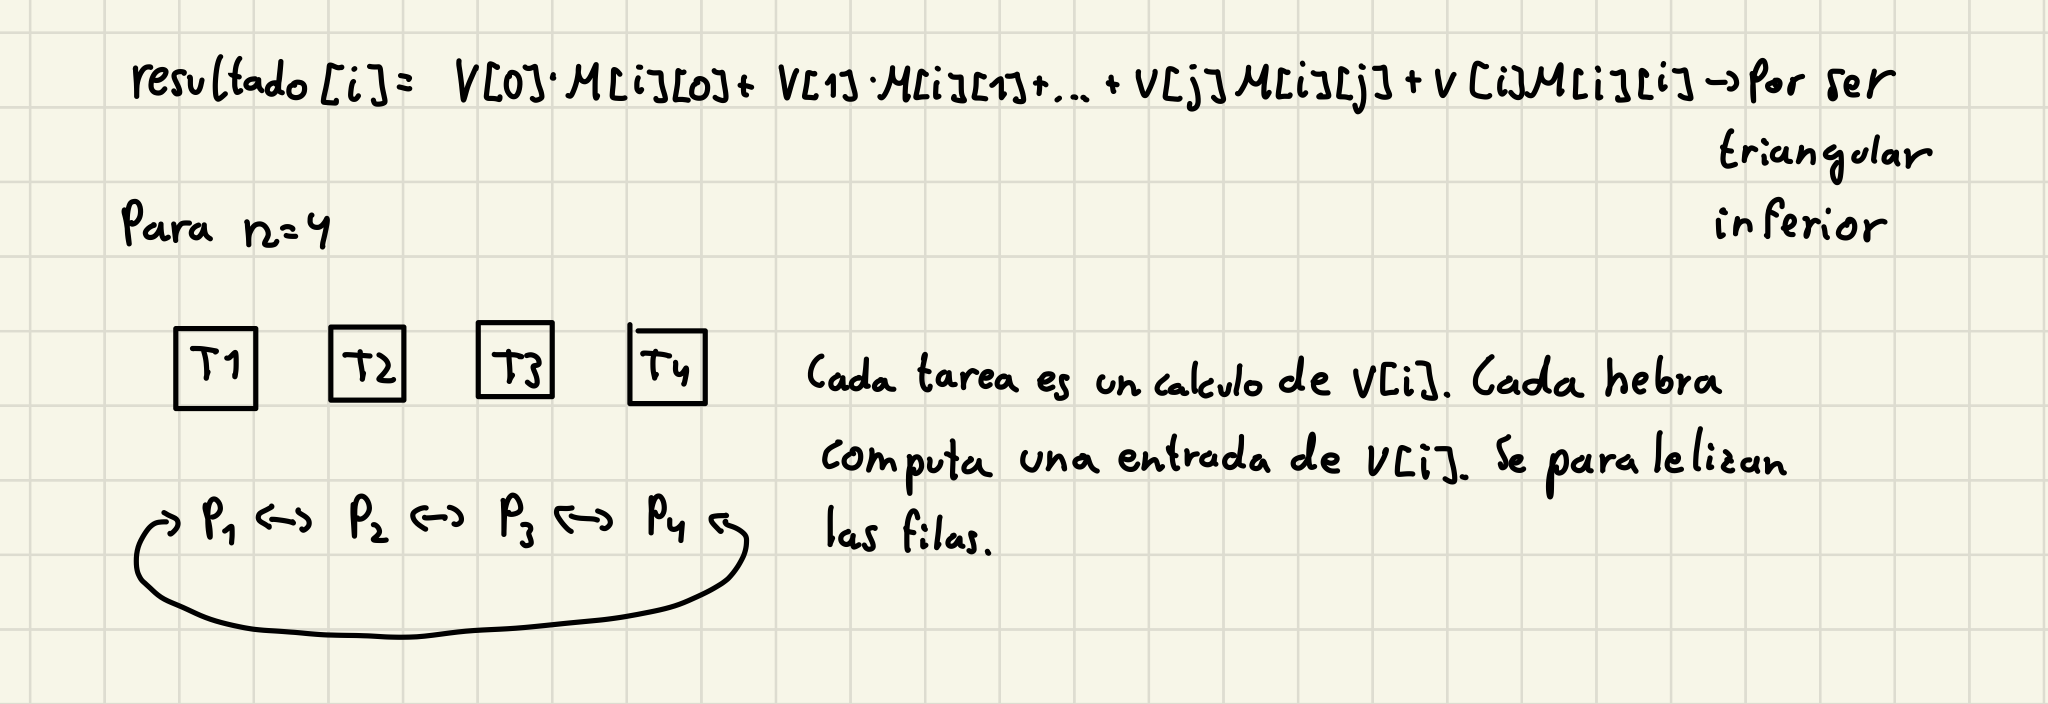 resultado[i]= V[0]·M[i][0]+ V[1]·M[i][1]+...+ V[j]M[i][j]+V[i]M[i][i]→Por ser
triangular
inferior
Para n=4
T1 T2 T3 T4
Cada tarea es un calculo de V[i]. Cada hebra
computa una entrada de V[i]. Se paralelizan
las filas.
P1 ↔ P2 ↔ P3 ↔ P4